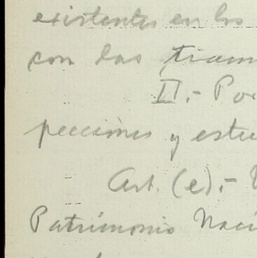 existentes en los
con las tram
II.- Po
pecciones y estu
Art. (e).-
Patrimonio Naci